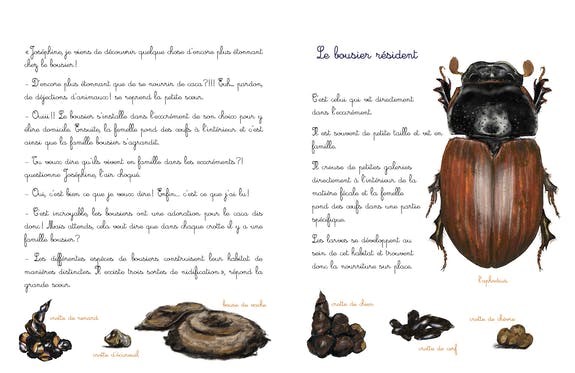 « Joséphine, je viens de découvrir quelque chose d'encore plus étonnant
chez le bousier!
- D'encore plus étonnant que de se nourrir de caca?!!! Euh... pardon,
de déjections d'animaux! se reprend la petite sœur.
- Ouiii!! Le bousier s'installe dans l'excrément de son choix pour y
élire domicile. Ensuite, la femelle pond des œufs à l'intérieur et c'est
ainsi que la famille bousier s'agrandit.
- Tu veux dire qu'ils vivent en famille dans les excréments?!
questionne Joséphine, l'air choqué.
- Oui, c'est bien ce que je veux dire! Enfin... c'est ce que j'ai lu!
- C'est incroyable, les bousiers ont une adoration pour le caca dis
donc! Mais attends, cela veut dire que dans chaque crotte il y a une
famille bousier?
- Les différentes espèces de bousiers construisent leur habitat de
manières distinctes. Il existe trois sortes de nidification », répond la
grande sœur.
crotte de renard
crotte d'écureuil
bouse de vache
Le bousier résident
C'est celui qui vit directement
dans l'excrément.
Il est souvent de petite taille et vit en
famille.
Il creuse de petites galeries
directement à l'intérieur de la
matière fécale et la femelle
pond des œufs dans une partie
spécifique.
Les larves se développent au
sein de cet habitat et trouvent
donc la nourriture sur place.
l'aphodius
crotte de chien
crotte de cerf
crotte de chèvre